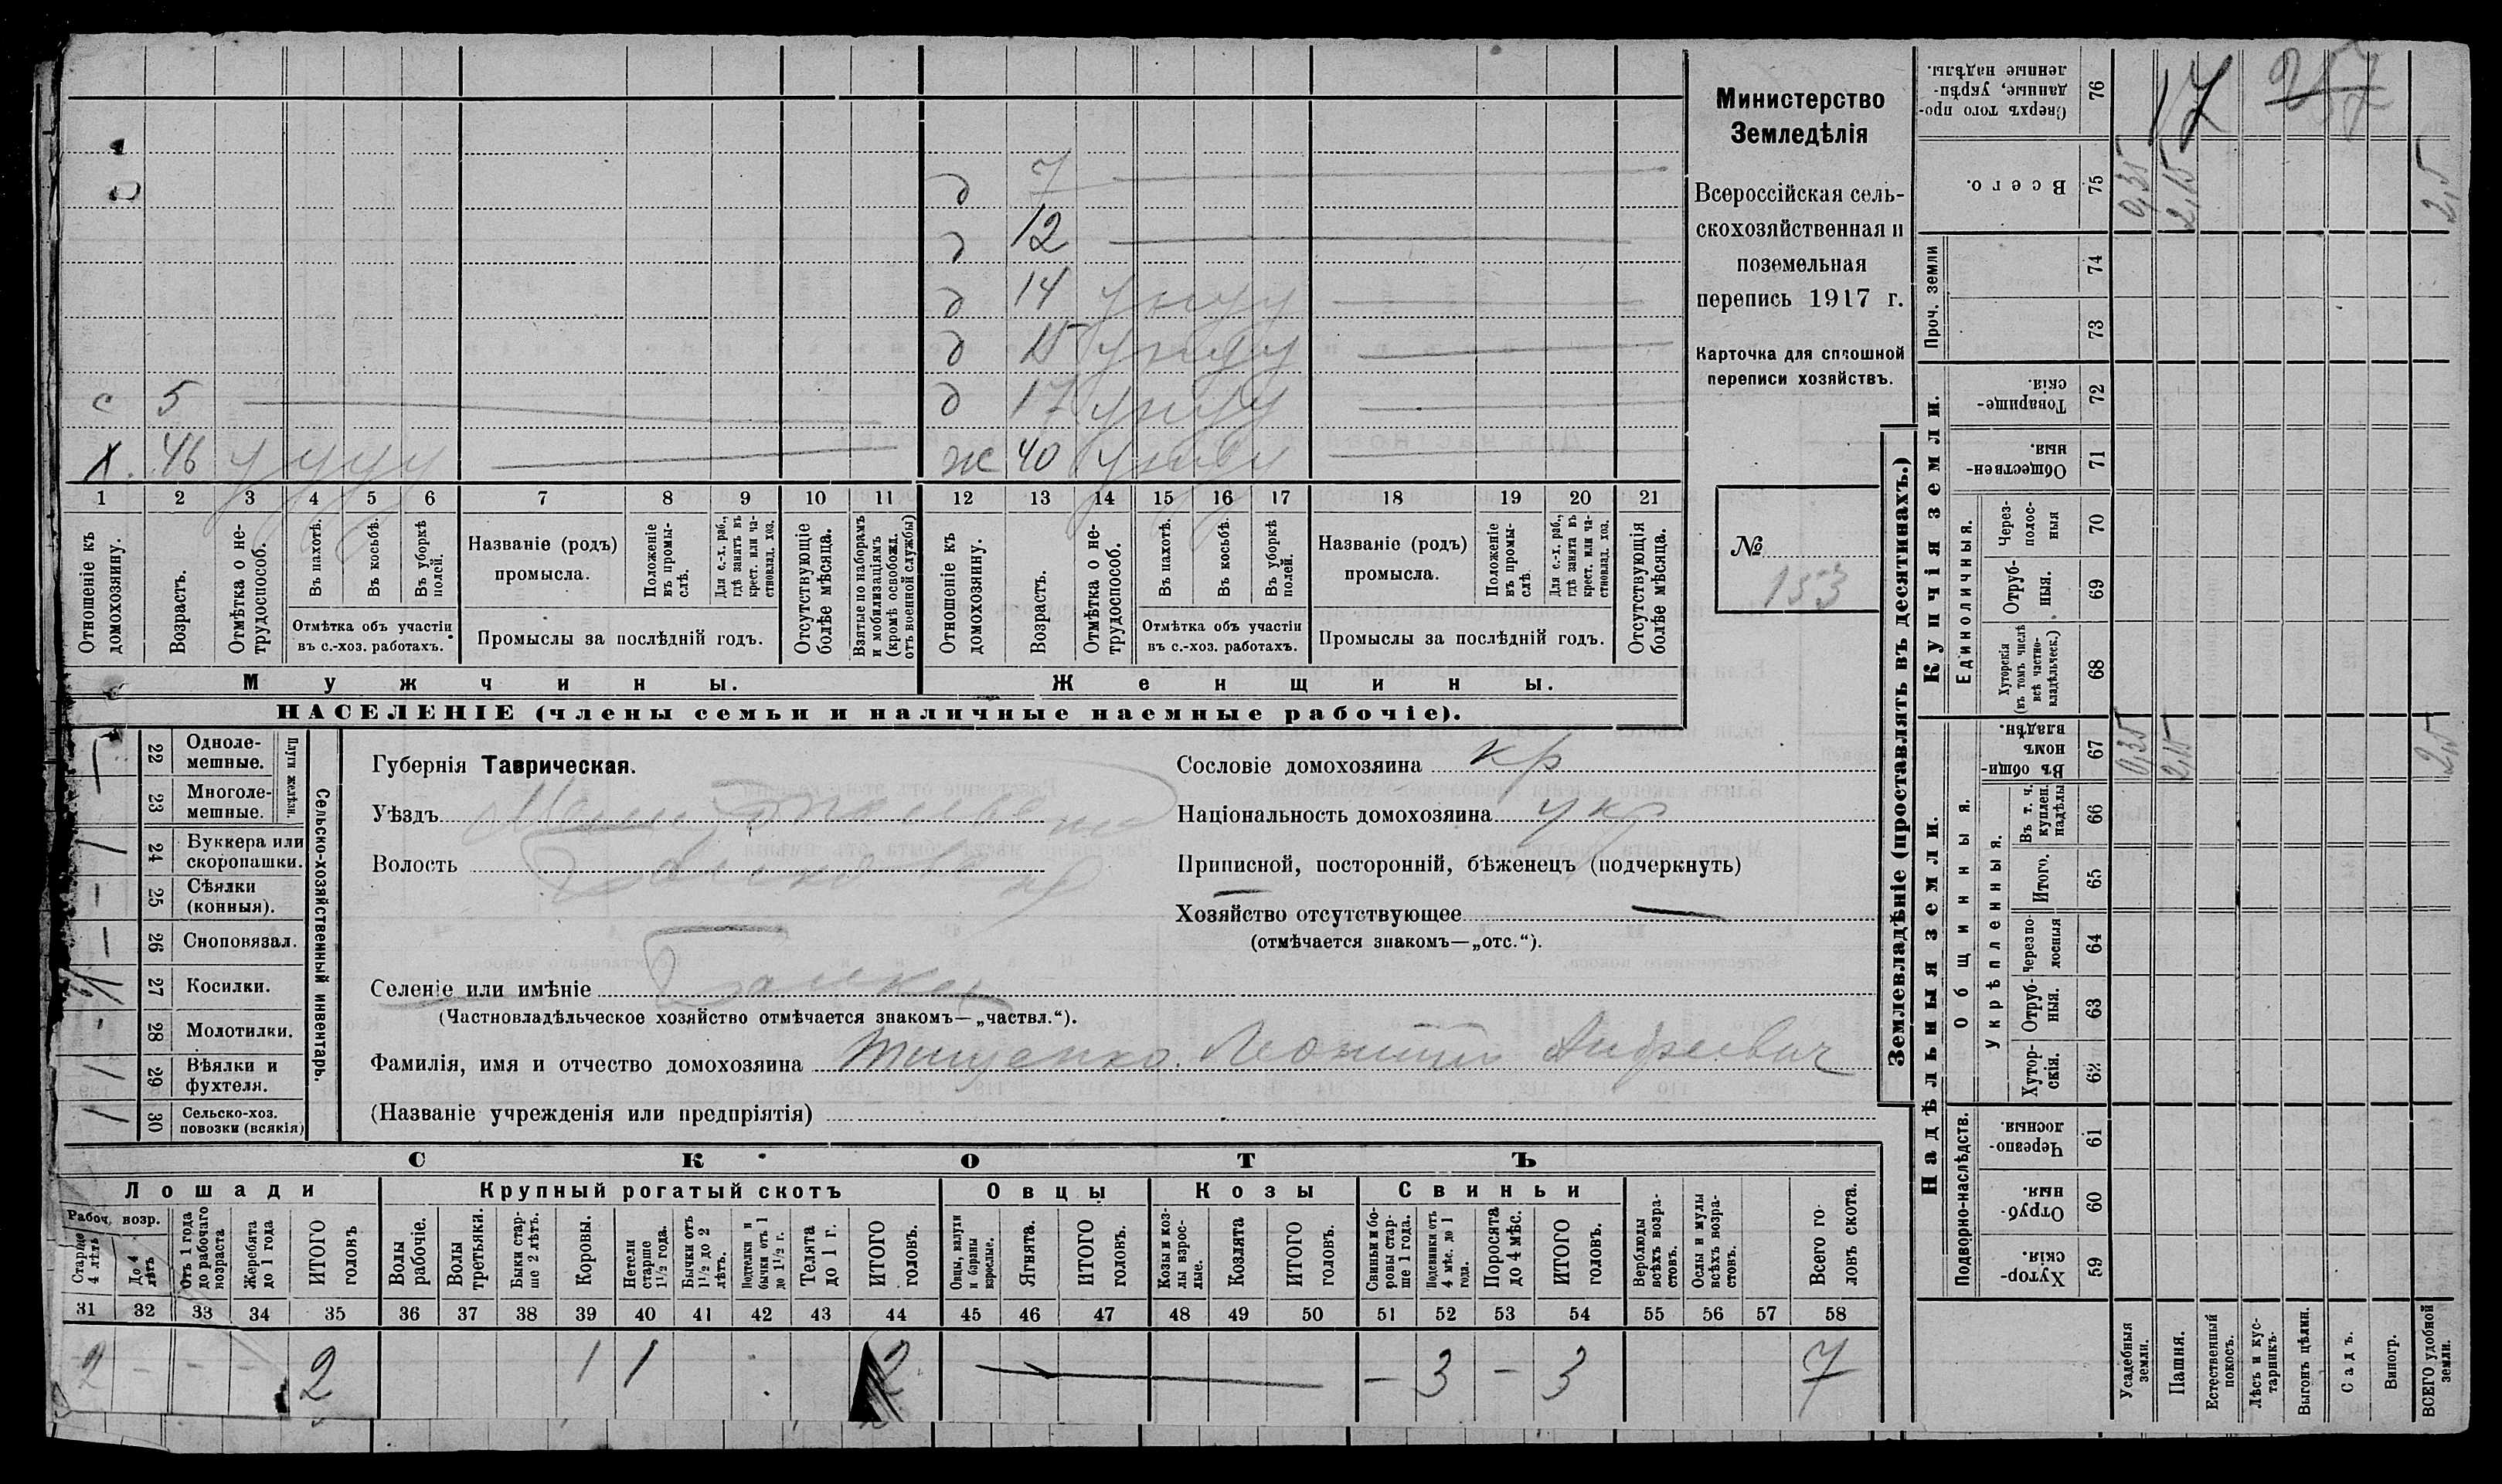 с 5
х. 46 у у у у
д 7
д 12
д 14 у н у у
д 15 у н у у
д 17 у н у у
ж 40
1 2 3 4 5 6 7 8 9 10 11 12 13 14 15 16 17 18 19 20 21
Отношеніе къ домохозяину.
Возрастъ.
Отмѣтка о нетрудоспособ.
Въ пахотѣ.
Въ косьбѣ.
Въ уборкѣ полей.
Отмѣтка объ участіи въ с.-хоз. работахъ.
Названіе (родъ) промысла.
Положеніе въ промыслѣ.
Для с.-х. раб., гдѣ занятъ въ крест. или частновлад. хоз.
Промыслы за послѣдній годъ.
Отсутствующіе болѣе мѣсяца.
Взятые по наборамъ и мобилизаціямъ (кромѣ освобожд. отъ военной службы)
Отношеніе къ домохозяину.
Возрастъ.
Отмѣтка о нетрудоспособ.
Въ пахотѣ.
Въ косьбѣ.
Въ уборкѣ полей.
Отмѣтка объ участіи въ с.-хоз. работахъ.
Названіе (родъ) промысла.
Положеніе въ промыслѣ
Для с.-х. раб., гдѣ занята въ крест. или частновлад. хоз.
Промыслы за послѣдній годъ.
Отсутствующія болѣе мѣсяца.
Мужчины.
Женщины.
НАСЕЛЕНІЕ (члены семьи и наличные наемные рабочіе).
Министерство
Земледѣлія
Всероссійская сель-
скохозяйственная и
поземельная
перепись 1917 г.
Карточка для сплошной
переписи хозяйствъ.
№
153
Сельско-хозяйственный инвентарь.
Плуги желѣзн.
22 Одноле-
мешные.
23 Многоле-
мешные.
24 Буккера или
скоропашки.
25 Сѣялки
(конныя).
26 Сноповязал.
27 Косилки.
28 Молотилки.
29 Вѣялки и
фухтеля.
30 Сельско-хоз.
повозки (всякія)
Губернія Таврическая.
Уѣздъ
Волость
Селеніе или имѣніе Балки
(Частновладѣльческое хозяйство отмѣчается знакомъ—„частвл.“).
Фамилія, имя и отчество домохозяина Тищенко Леонтій Андреевич
(Названіе учрежденія или предпріятія)
Сословіе домохозяина кр
Національность домохозяина укр
Приписной, посторонній, бѣженецъ (подчеркнуть)
Хозяйство отсутствующее —
(отмѣчается знакомъ—„отс.“).
СКОТЪ
Лошади
Крупный рогатый скотъ
Овцы
Козы
Свиньи
Рабоч. возр.
Старше 4 лѣтъ
До 4 лѣтъ
Отъ 1 года до рабочаго возраста
Жеребята до 1 года
ИТОГО головъ
Волы рабочіе.
Волы третьяки.
Быки старше 2 лѣтъ.
Коровы.
Нетели старше 1½ года.
Бычки отъ 1½ до 2 лѣтъ.
Подтелки и бычки отъ 1 до 1½ г.
Телята до 1 г.
ИТОГО головъ.
Овцы, валухи и бараны взрослые.
Ягнята.
ИТОГО головъ.
Козы и козлы взрослые.
Козлята
ИТОГО головъ.
Свиньи и боровы старше 1 года.
Подсвинки отъ 4 мѣс. до 1 года.
Поросята до 4 мѣс.
ИТОГО головъ.
Верблюды всѣхъ возрастовъ.
Ослы и мулы всѣхъ возрастовъ.
Всего головъ скота.
31 32 33 34 35 36 37 38 39 40 41 42 43 44 45 46 47 48 49 50 51 52 53 54 55 56 57 58
2 – – – 2 1 1 2 — – 3 – 3 7
Землевладѣніе (проставлять въ десятинахъ.)
Купчія земли.
Надѣльныя земли.
Проч. земли
Единоличныя.
Общинныя.
Укрѣпленныя.
Подворно-наслѣдств.
Сверхъ того проданные, укрѣпленные надѣлы. 76
Всего. 75
74
73
Товарищескія. 72
Общественныя 71
Черезполосныя 70
Отрубныя. 69
Хуторскія (въ томъ числѣ всѣ частновладѣльческ.) 68
Въ общиномъ владѣн. 67
Въ т. ч. куплен. надѣлы 66
Итого. 65
Черезполосныя 64
Отрубныя. 63
Хуторскія. 62
Черезполосныя. 61
Отрубныя. 60
Хуторскія. 59
Усадебныя земли.
Пашня.
Естественный покосъ.
Лѣсъ и кустарникъ.
Выгонъ цѣлин.
Садъ.
Виногр.
ВСЕГО удобной земли.
17
257
0,35 2,15 2,5
0,35 2,15 2,5